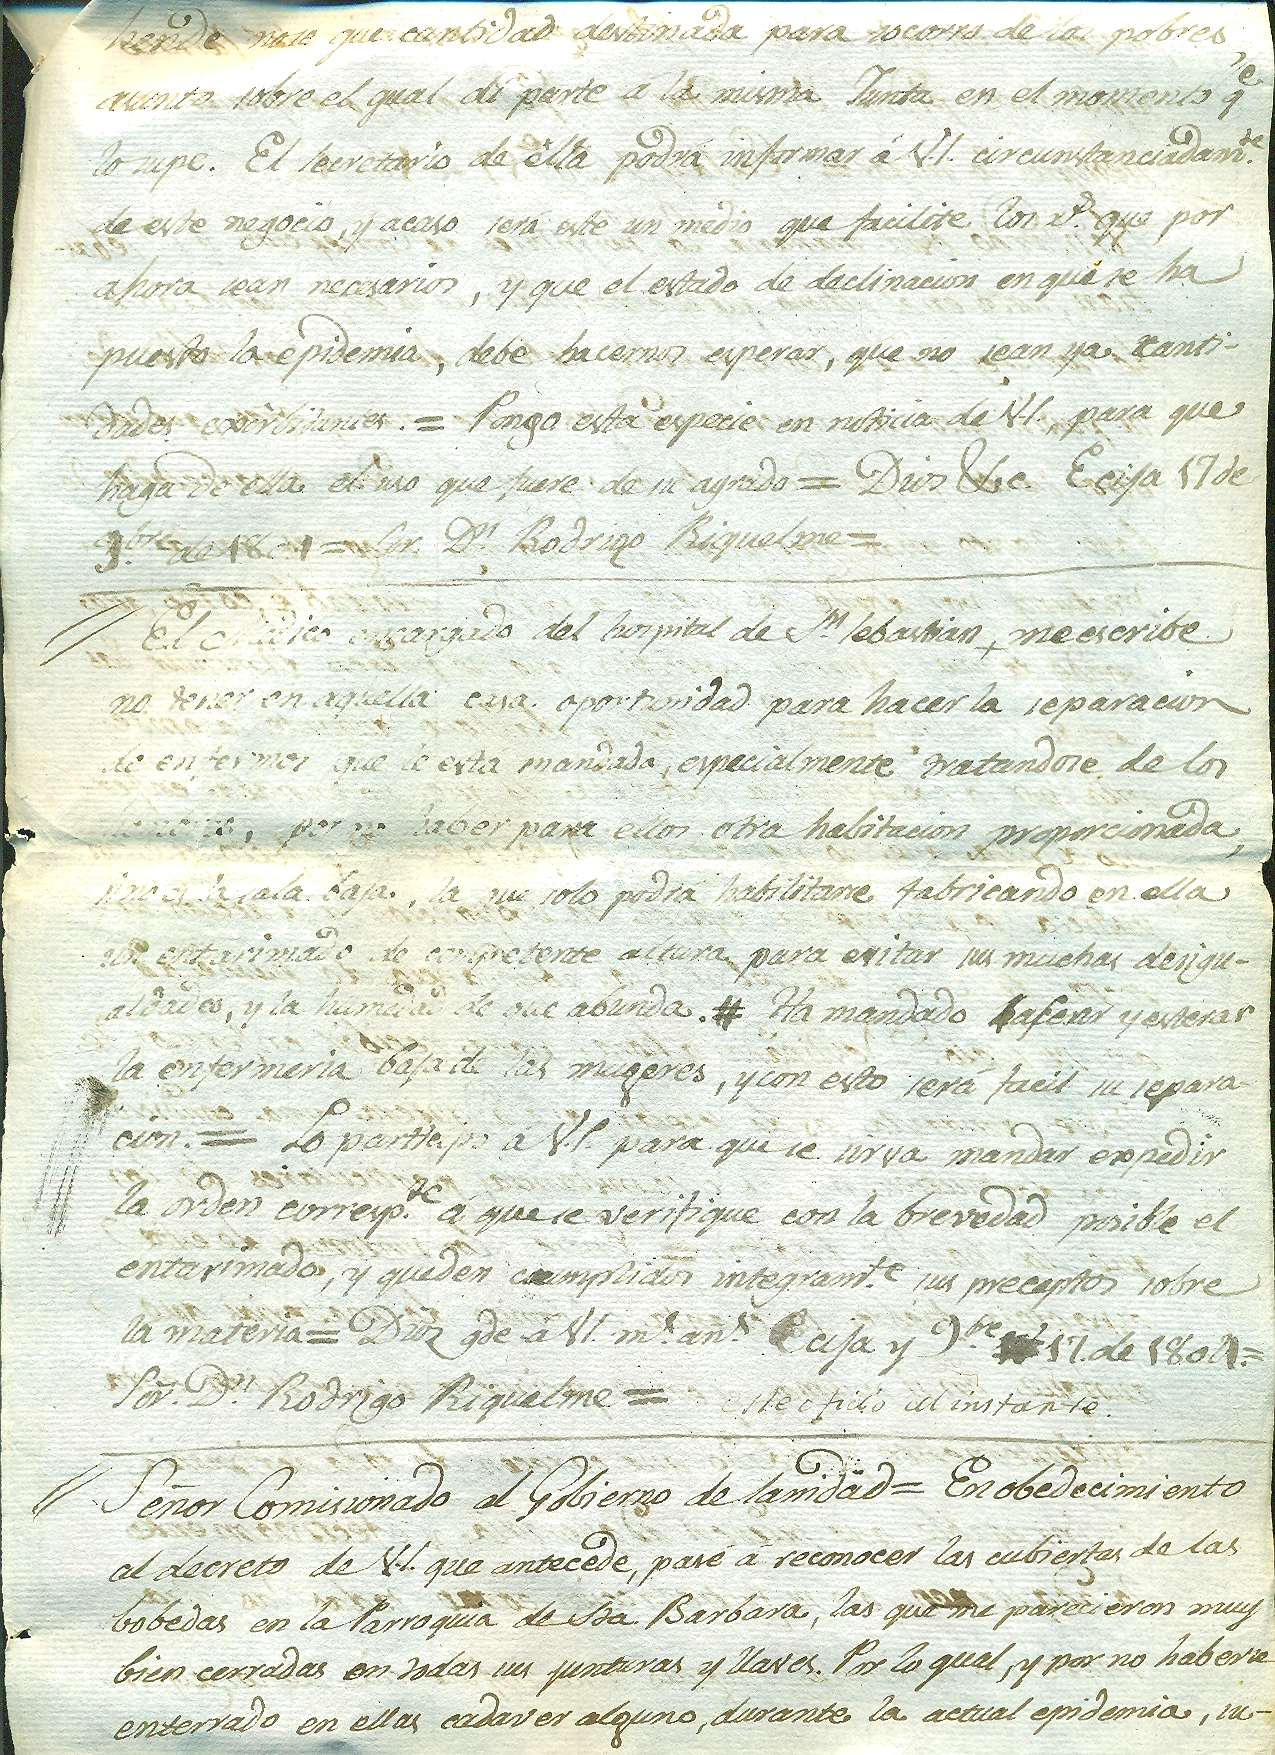 hende nose que cantidad destinada para socorro de los pobres
asunto sobre el qual di parte à la misma Junta en el momento q.e
lo supe. El secretario de ella podrà informar à V.I. circunstanciadam.te
de este negocio, y acaso serà este un medio que facilite los r.s que por
ahora sean necesarios, y que el estado de declinacion en que se ha
puesto la epidemia, debe hacernos esperar, que no sean ya canti-
dades exorbitantes. = Pongo esta especie en noticia de V.I. para que
haga de ella el uso que fuere de su agrado = Dios &c. Ecija 17 de
9.bre de 1804 = Sor. Dn. Rodrigo Riquelme =
// El Medico encargado del hospital de Sn. Sebastian, me escribe
no tener en aquella casa oportunidad para hacer la separacion
de enfermos que le està mandada, especialmente tratandose de los
por no haber para ellos otra habitacion proporcionada,
sino es la sala baja, la que solo podrà habilitarse fabricando en ella
un entarimado de competente altura para evitar sus muchas desigu-
aldades, y la humedad de que abunda. # Ha mandado asear y esterar
la enfermeria baja de las mugeres, y con esto serà facil su separa-
cion. = Lo participo à V.I. para que se sirva mandar expedir
la orden corresp.te à que se verifique con la brevedad posible el
entarimado, y queden cumplidos integram.te sus preceptos sobre
la materia = Dios gde à V.I. m.s an.s Ecija y 9.bre 17. de 1804 =
Sor. Dn. Rodrigo Riquelme = este oficio al instante.
// Señor Comisionado al Gobierno de sanidad = En obedecimiento
al decreto de V.I. que antecede, pasé à reconocer las cubiertas de las
bobedas en la Parroquia de Sta Barbara, las que me parecieron muy
bien cerradas en todas sus junturas y llaves. Por lo qual, y por no haberse
enterrado en ellas cadaver alguno, durante la actual epidemia, su-